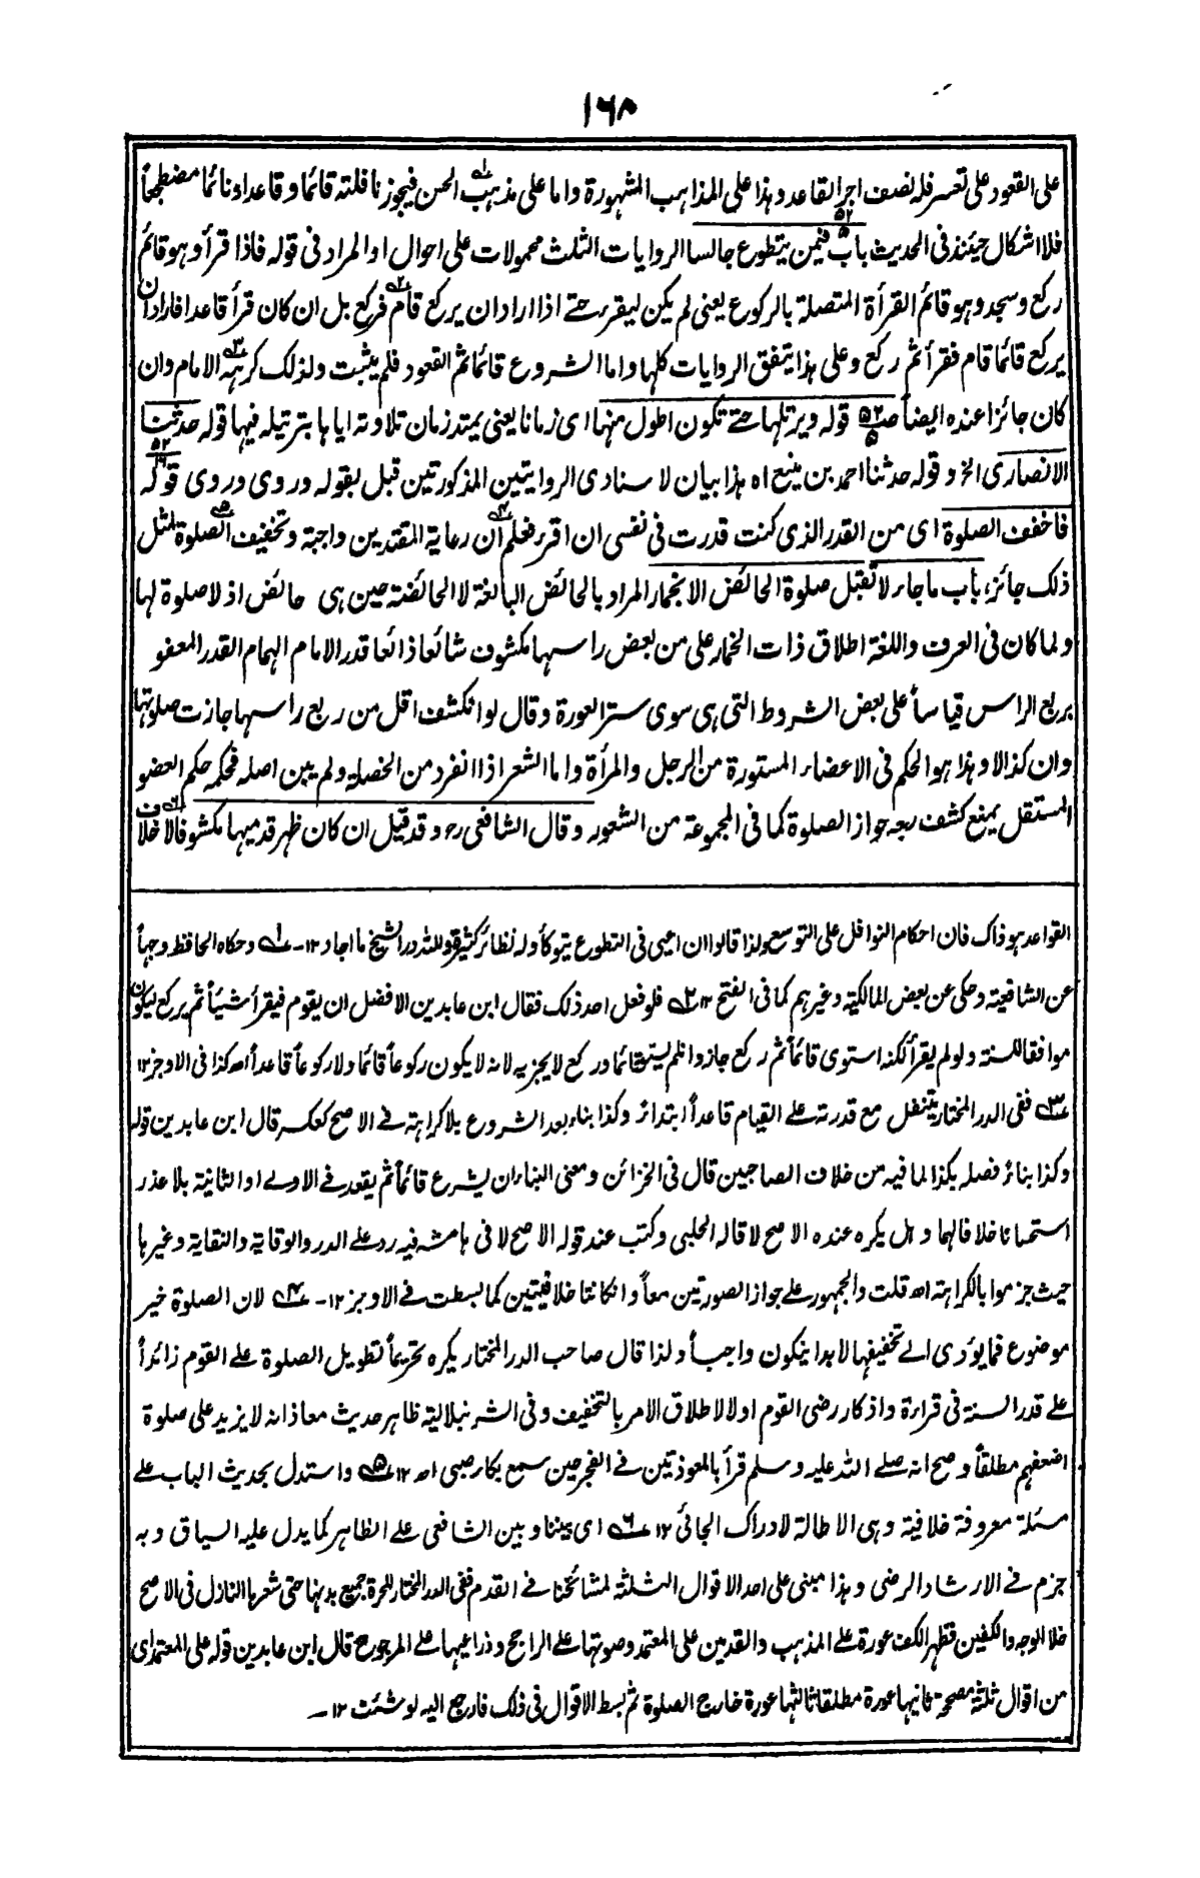 ١٦٨
على القعود على تعسر فله نصف اجر القاعد وهذا على المذاهب المشهورة واما على مذهب الحسن فيجوز نافلته قائما وقاعدا ونائما مضطجعاً
فلا اشكال حينئذ فى الحديث باب فيمن يتطوع جالسا الروايات الثلث محمولات على احوال او المراد فى قوله فاذا قرأ وهو قائم
ركع وسجد وهو قائم القرأة المتصلة بالركوع يعنى لم يكن ليقرر حتے اذا اراد ان يركع قام فركع بل ان كان قرأ قاعدا فاراد ان
يركع قائما قام فقرأ ثم ركع وعلى هذا يتفق الروايات كلها واما الشروع قائما ثم القعود فلم يثبت ولذلك كرهه الامام وان
كان جائزا عنده ايضاً قوله ويرتلها حتے تكون اطول منها اى زمانا يعنى يمتد زمان تلاوته اياها بترتيله فيها قوله حدثنا
الانصارى الخ و قوله حدثنا احمد بن منيع اه هذا بيان لاسنادى الروايتين المذكورتين قبل بقوله وروى وروى قوله
فاخفف الصلوة اى من القدر الذى كنت قدرت فى نفسى ان اقرء فعلم ان رعاية المقتدين واجبة وتخفيف الصلوة لمثل
ذلك جائز، باب ماجاء لا تقبل صلوة الحائض الا بخمار المراد بالحائض البالغة لا الحائضة حين هى حائض اذ لا صلوة لها
ولما كان فى العرف واللغة اطلاق ذات الخمار على من بعض راسها مكشوف شائعا ذائعا قدر الامام الهمام القدر المعفو
بربع الراس قياساً على بعض الشروط التى هى سوى ستر العورة وقال لو انكشف اقل من ربع راسها جازت صلوتها
وان كذا لا وهذا هو الحكم فى الاعضاء المستورة من الرجل والمرأة واما الشعر اذا انفرد من الخصلة ولم يبين اصله فحكمه حكم العضو
المستقل يمنع كشف ربعه جواز الصلوة كما فى المجموعة من الشعور وقال الشافعى رح وقد قيل ان كان ظهر قدميها مكشوفا لا خلاف
القواعد هو ذاك فان احكام النوافل على التوسع ولذا قالوا ان اعيى فى التطوع يتوكأ وله نظائر كثيرة وللّٰه در الشيخ ما اجاد ١٢- ١ وحكاه الحافظ وجهاً
عن الشافعية وحكى عن بعض المالكية وغيرهم كما فى الفتح ١٢ ٢ فلو فعل احد ذلك فقال ابن عابدين الافضل ان يقوم فيقرأ شيئاً ثم يركع ليكون
موافقا للسنة ولو لم يقرأ لكنه استوى قائماً ثم ركع جاز وان لم يستو قائما وركع لا يجزيه لانه لا يكون ركوعاً قائما ولا ركوعاً قاعداً اھ كذا فى الاوجز ١٢
٣ ففى الدر المختار يتنفل مع قدرته علے القيام قاعداً ابتداءً وكذا بناء بعد الشروع بلا كراهة فے الاصح كعكسه قال ابن عابدين قوله
وكذا بناءً فصله بكذا لما فيه من خلاف الصاحبين قال فى الخزائن ومعنى البناء ان يشرع قائماً ثم يقعد فے الاولے او الثانية بلا عذر
استحسانا خلافا لهما وهل يكره عنده الاصح لا قاله الحلبى وكتب عند قوله الاصح لا فى هامشه فيه رد علے الدرر والوقاية والنقاية وغيرها
حيث جزموا بالكراهة اھ قلت والجمهور علے جواز الصورتين معاً وان كانتا خلافيتين كما بسطت فے الاوجز ١٢- ٤ لان الصلوة خير
موضوع فما يؤدى الے تخفيفها لابد ان يكون واجباً ولذا قال صاحب الدر المختار يكره تحريماً تطويل الصلوة علے القوم زائداً
علے قدر السنة فى قراءة واذكار رضى القوم اولا لاطلاق الامر بالتخفيف وفى الشرنبلالية ظاهر حديث معاذ انه لا يزيد على صلوة
اضعفهم مطلقاً وصح انه صلے اللّٰه عليه وسلم قرأ بالمعوذتين فے الفجر حين سمع بكاء صبى اھ ١٢ ٥ واستدل بحديث الباب علے
مسئلة معروفة خلافية وهى الاطالة لادراك الجائى ١٢ ٦ اى بيننا وبين الشافعى علے الظاهر كما يدل عليه السياق وبه
جزم فے الارشاد الرضى وهذا مبنى على احد الاقوال الثلثة لمشائخنا فے القدم ففى الدر المختار للحرة جميع بدنها حتى شعرها النازل فى الاصح
خلا الوجه والكفين فظهر الكف عورة علے المذهب والقدمين على المعتمد وصوتها علے الراجح وذراعيها علے المرجوح قال ابن عابدين قوله على المعتمد اى
من اقوال ثلثة مصححة ثانيها عورة مطلقا ثالثها عورة خارج الصلوة ثم بسط الاقوال فى ذلك فارجع اليه لو شئت ١٢-